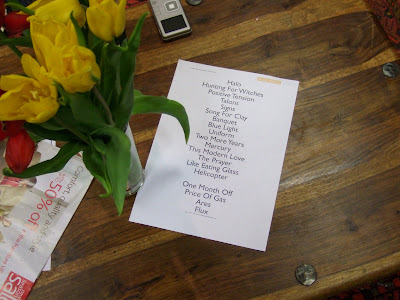 Halo
Hunting For Witches
Positive Tension
Talons
Signs
Song For Clay
Banquet
Blue Light
Uniform
Two More Years
Mercury
This Modern Love
The Prayer
Like Eating Glass
Helicopter
One Month Off
Price Of Gas
Ares
Flux
50%
sale